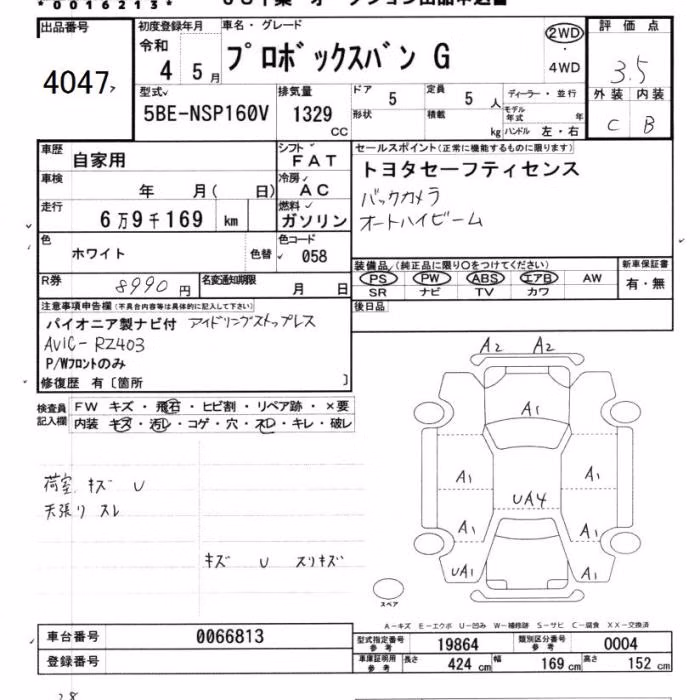 *0016213*
出品番号
4047
初度登録年月
令和
4 5月
車名・グレード
プロボックスバン G
2WD
4WD
評価点
3.5
外装 内装
C B
型式
5BE-NSP160V
排気量
1329 CC
ドア 5
形状
定員 5 人
積載 kg
ディーラー・並行
モデル年式 年
ハンドル 左・右
車歴 自家用
シフト FAT
車検 年 月( 日)
冷房 AC
走行 6万9千169 km
燃料 ガソリン
色 ホワイト 色替
色コード 058
R券 8990円
名変通知期限 月 日
セールスポイント(正常に機能するものに限ります)
トヨタセーフティセンス
バックカメラ
オートハイビーム
装備品(純正品に限り○をつけてください)
PS PW ABS エアB AW
SR ナビ TV カワ
新車保証書
有・無
後日品
注意事項申告欄(不具合内容等は具体的に記入して下さい)
パイオニア製ナビ付 アイドリングストップレス
AVIC-RZ403
P/Wフロントのみ
修復歴 有〔箇所 〕
検査員記入欄
FW キズ・飛石・ヒビ割・リペア跡・×要
内装 キズ・汚レ・コゲ・穴・スレ・キレ・破レ
荷室 キズ U
天張り スレ
キズ U スリキズ
A2 A2
A1
A1 A1
UA4
A1 A1
UA1 A1
スペア
A-キズ E-エクボ U-凹み W-補修跡 S-サビ C-腐食 XX-交換済
車台番号 0066813
登録番号
型式指定番号参考 19864
類別区分番号参考 0004
車庫証明用参考 長さ 424 cm 幅 169 cm 高さ 152 cm